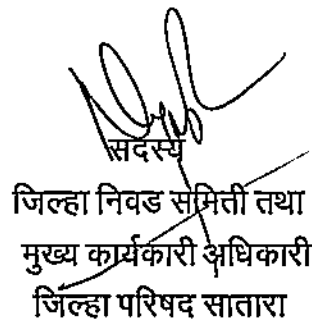 सदस्य
जिल्हा निवड समिती तथा
मुख्य कार्यकारी अधिकारी
जिल्हा परिषद सातारा